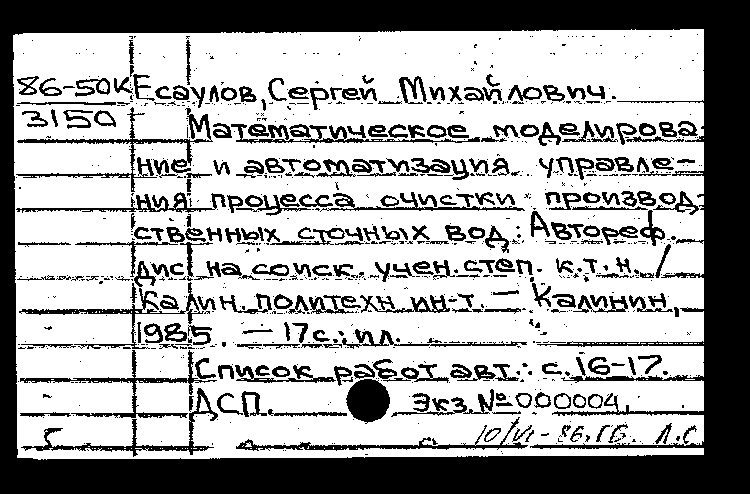 86-50К Есаулов, Сергей Михайлович.
3150 Математическое моделирова-
ние и автоматизация управле-
ния процесса очистки производ-
ственных сточных вод: Автореф.
дис. на соиск. учен. степ. к.т.н. /
Калин. политехн. ин-т. — Калинин,
1985. — 17с.: ил.
Список работ авт.: с.16-17.
ДСП. Экз. № 000004.
10/VI - 86. ГБ. Л.С